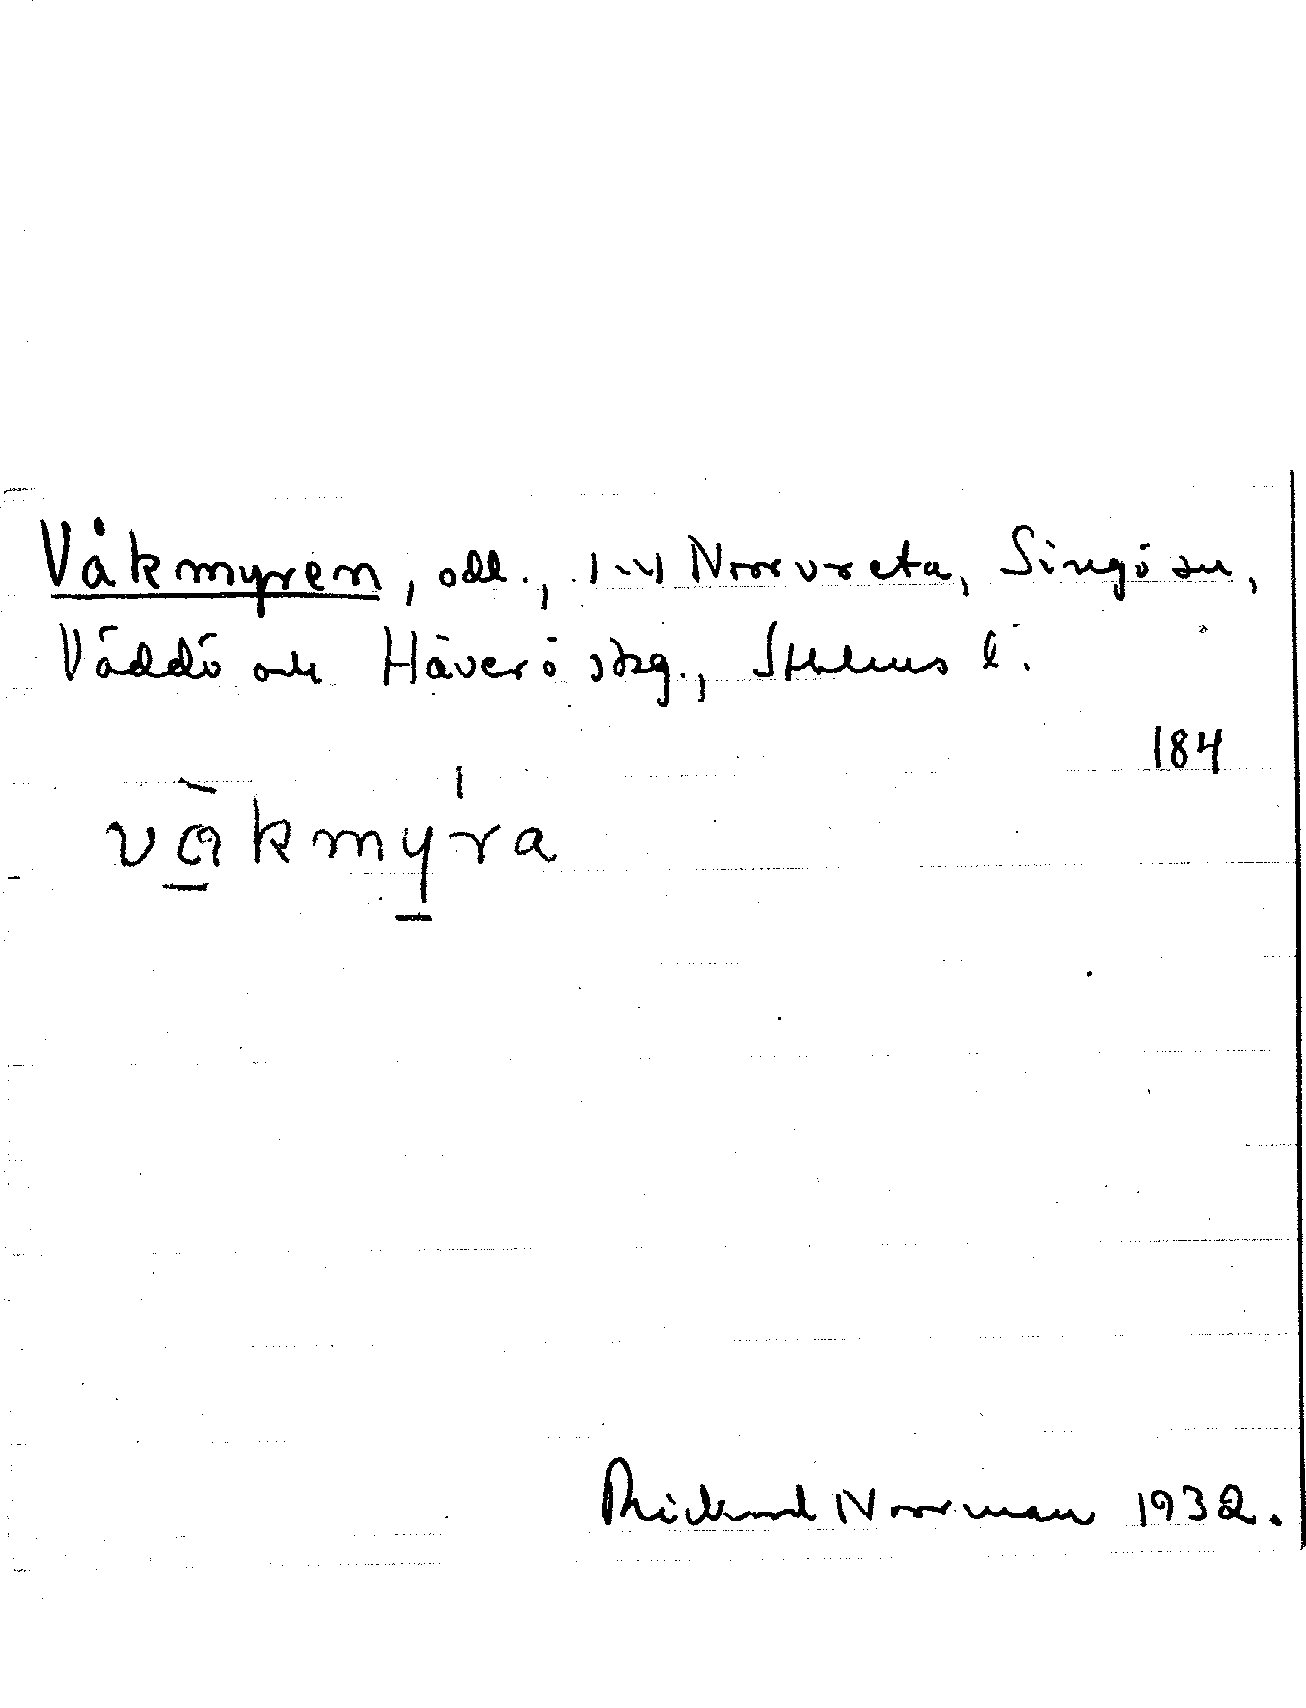 Våkmyren, odl., i-v Norrvreta, Singö sn,
Väddö och Häverö skg., Sthlms l.
184
våkmyra
Rickard Norrman 1932.